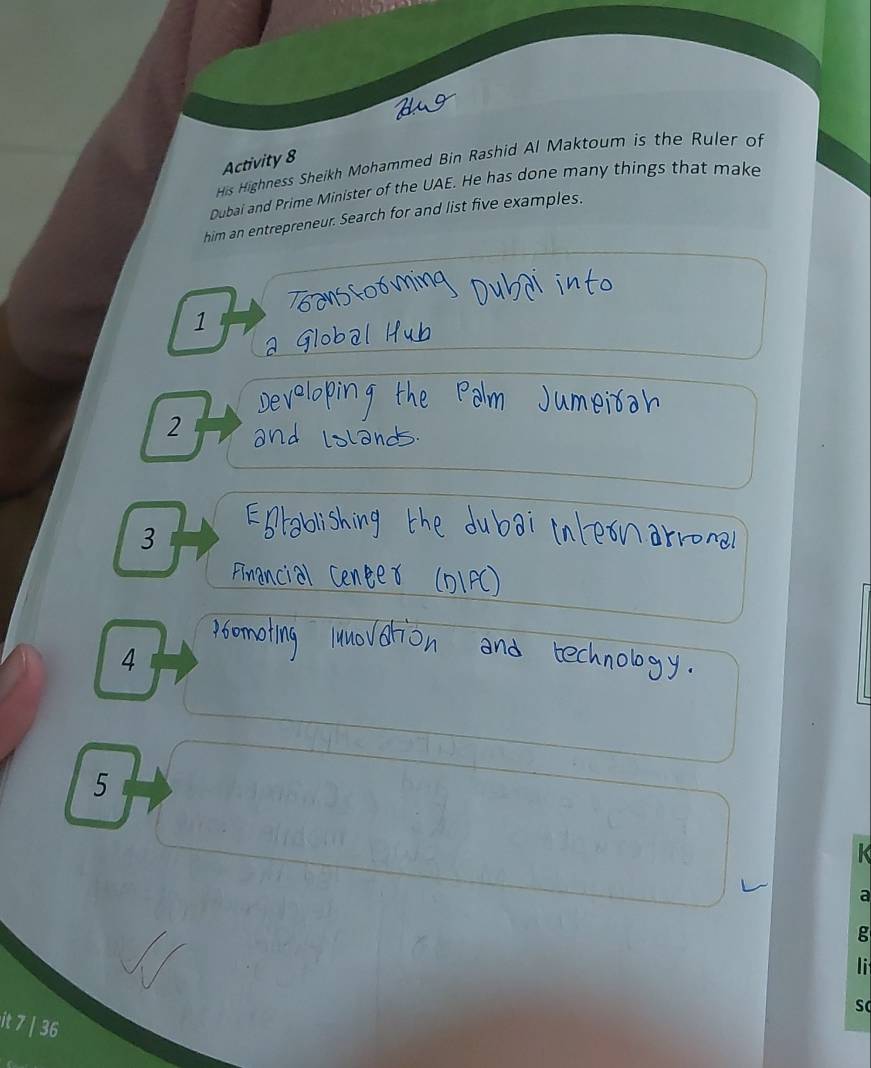 Activity 8
His Highness Sheikh Mohammed Bin Rashid Al Maktoum is the Ruler of
Dubai and Prime Minister of the UAE. He has done many things that make
him an entrepreneur. Search for and list five examples.
1
Transforming Dubai into
a Global Hub
2
Developing the Palm Jumeirah
and Islands.
3
Establishing the dubai international
Financial Center (DIFC)
4
Promoting innovation and technology.
5
K
a
g
li
so
it 7 | 36